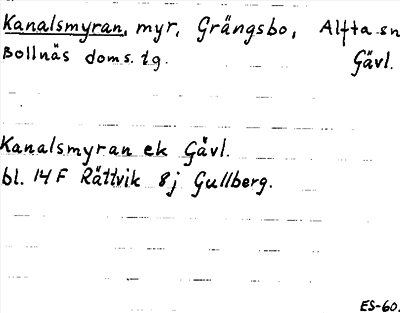 Kanalsmyran, myr, Grängsbo, Alfta sn
Bollnäs doms. tg. Gävl.
Kanalsmyran ek Gävl.
bl. 14 F Rättvik 8j Gullberg.
ES-60.